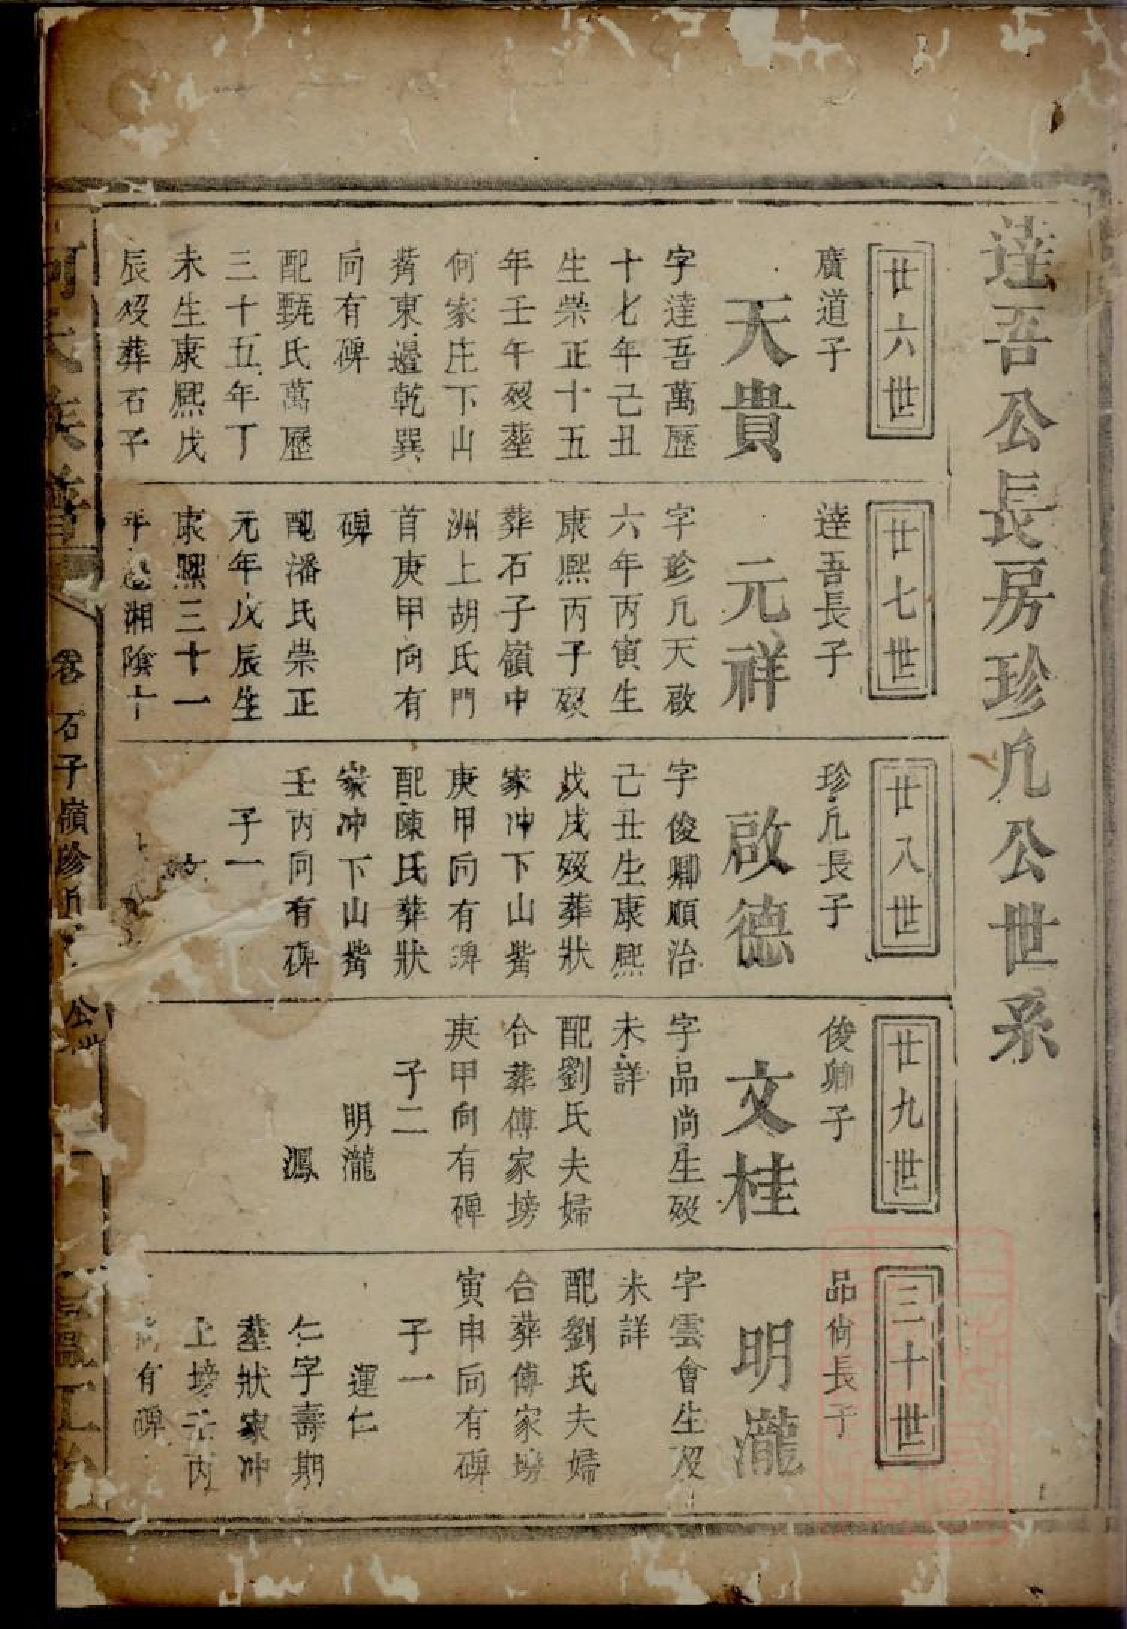 達吾公長房珍凢公世系
廿六世
廣道子
天貴
字達吾萬歷
十七年己丑
生崇正十五
年壬午歿塟
何家庄下山
觜東邉乾巽
向有碑
配甄氏萬歷
三十五年丁
未生康熙戊
辰歿葬石子
廿七世
達吾長子
元祥
字珍凢天啟
六年丙寅生
康熙丙子歿
葬石子嶺中
洲上胡氏門
首庚甲向有
碑
配潘氏崇正
元年戊辰生
康熙三十一
年 湘陰十
廿八世
珍凢長子
啟德
字俊卿順治
己丑生康熙
戊戌歿葬狀
家冲下山觜
庚甲向有碑
配陳氏葬狀
家冲下山觜
壬丙向有碑
子一
廿九世
俊卿子
文桂
字品尚生歿
未詳
配劉氏夫婦
合葬傅家塝
庚甲向有碑
子二
明瀧
鳳
三十世
品尚長子
明瀧
字雲會生歿
未詳
配劉氏夫婦
合葬傅家塝
寅申向有碑
子一
運仁
仁字壽期
塟狀家冲
上塝壬丙
向有碑
何氏族譜
卷 石子嶺珍凢 公世